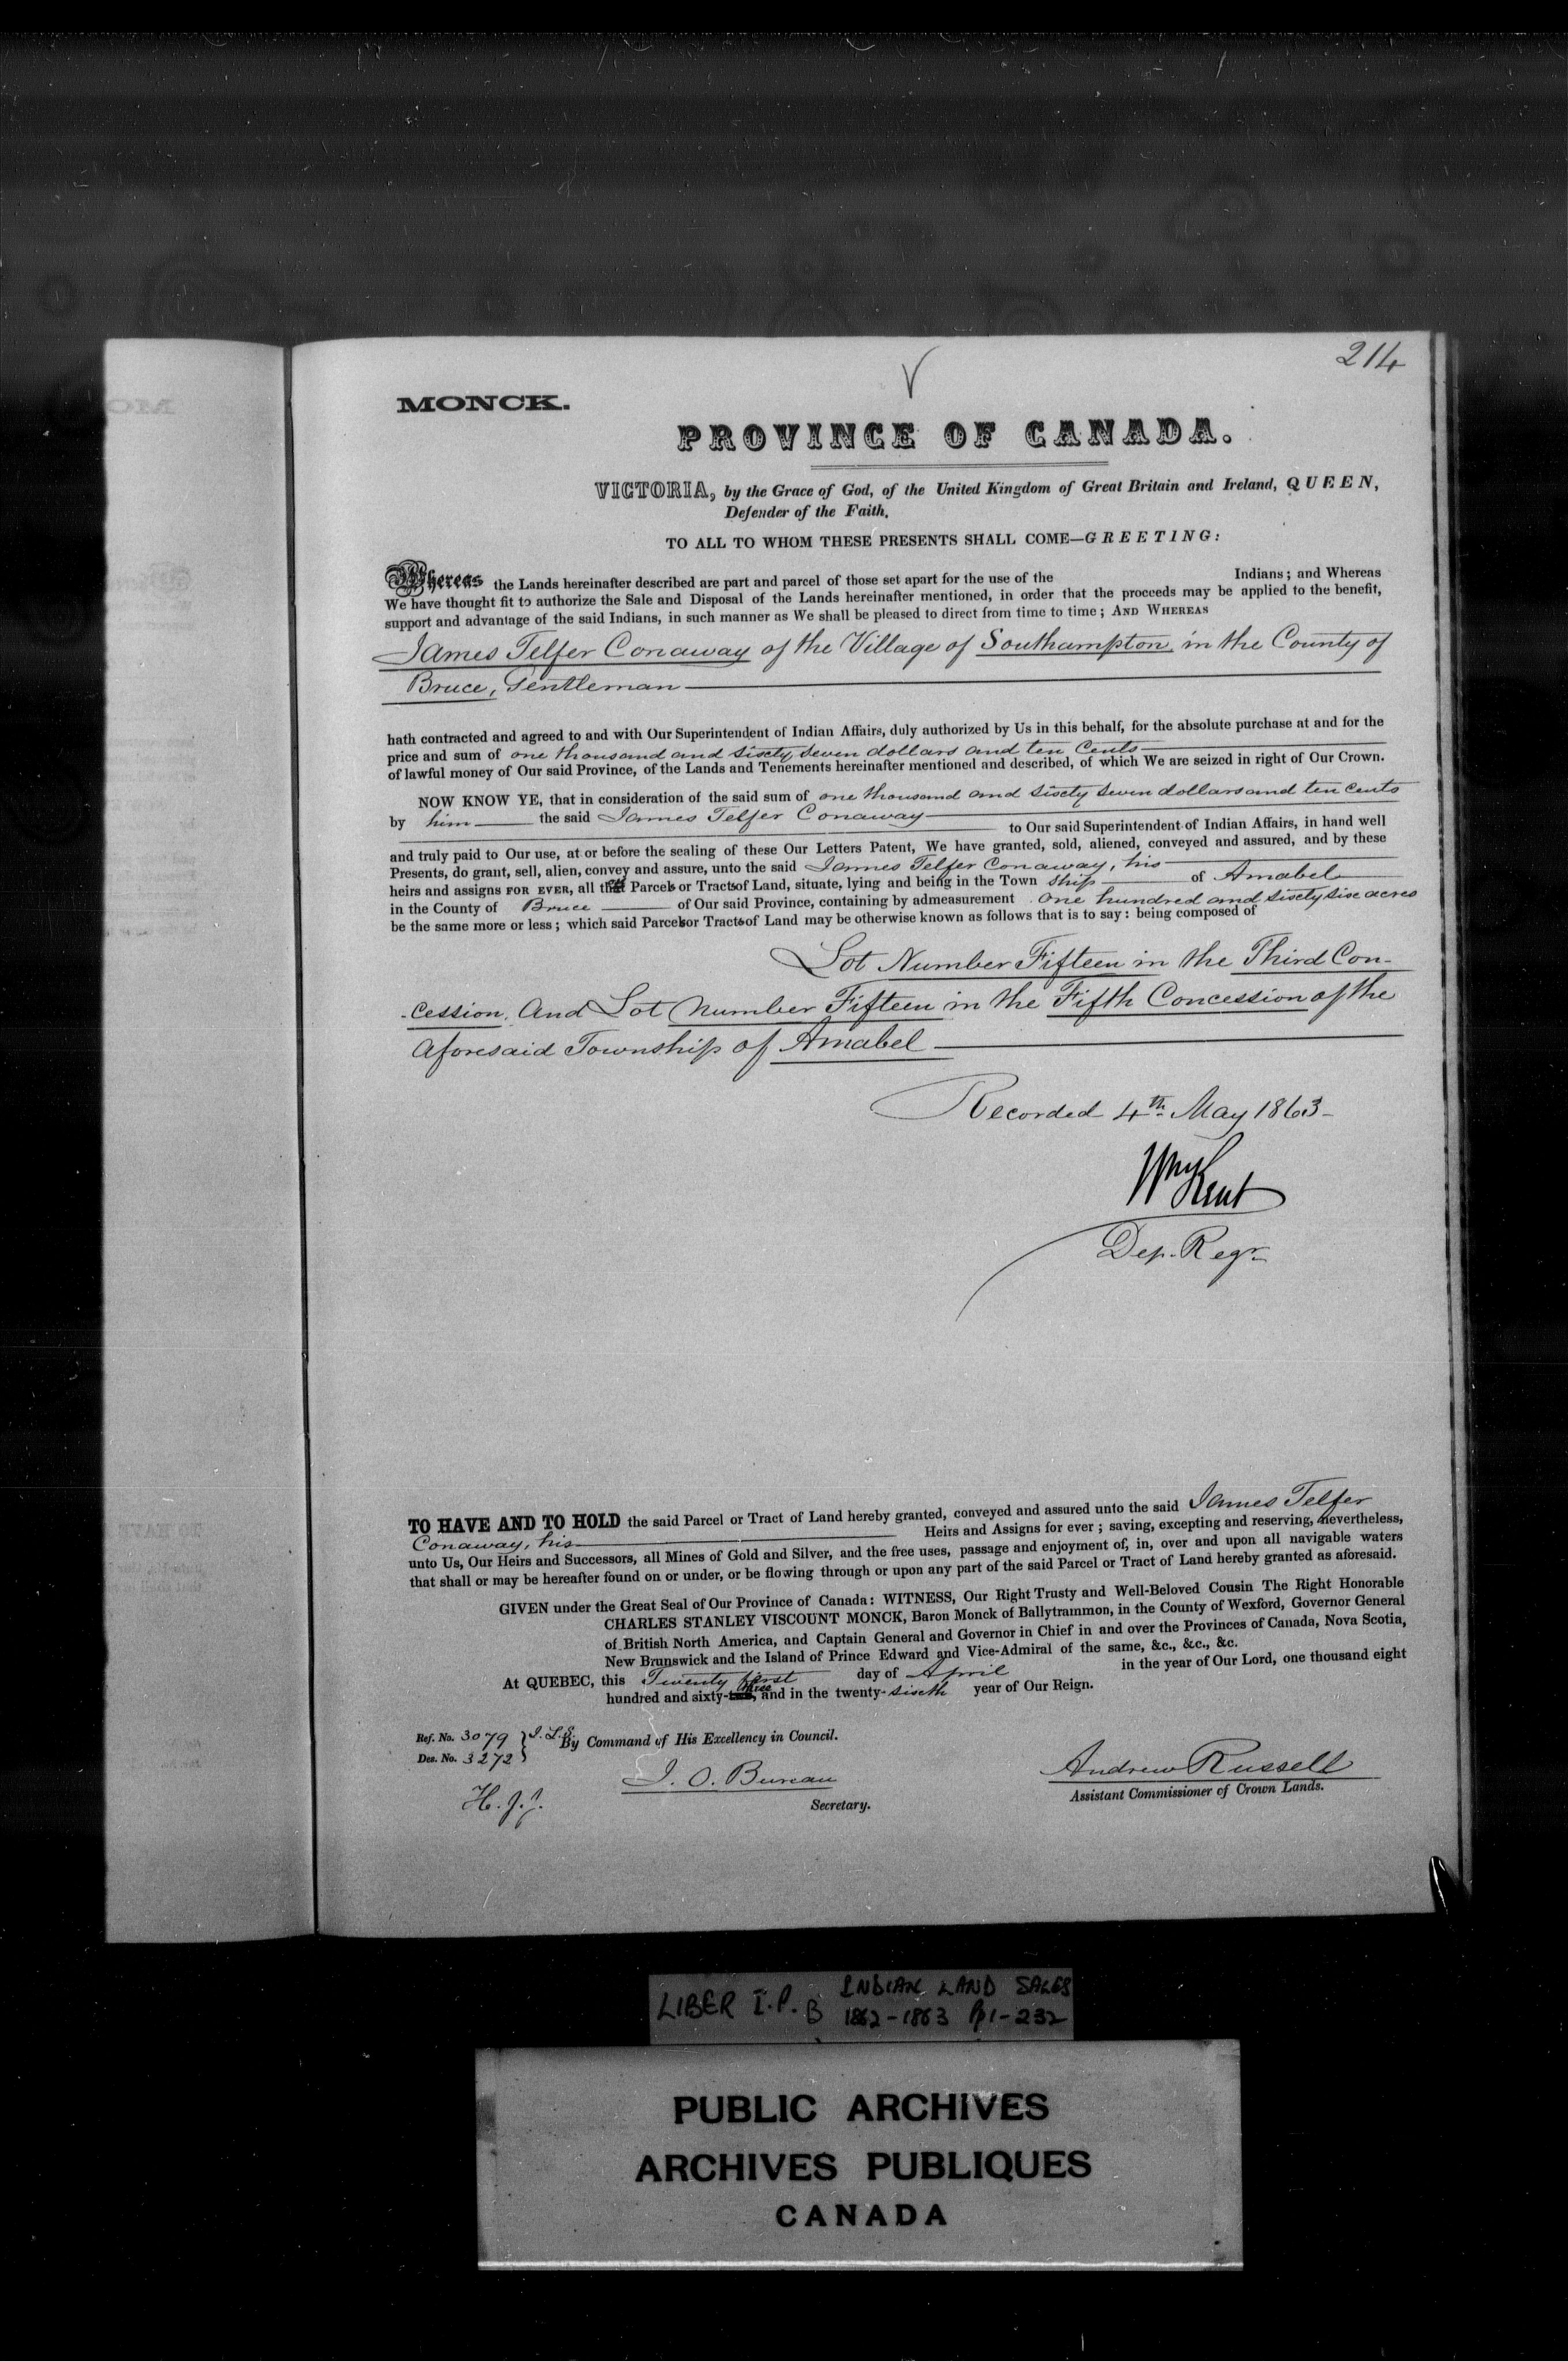 214
V
MONCK.
PROVINCE OF CANADA.
VICTORIA, by the Grace of God, of the United Kingdom of Great Britain and Ireland, QUEEN,
Defender of the Faith,
TO ALL TO WHOM THESE PRESENTS SHALL COME—GREETING:
Whereas the Lands hereinafter described are part and parcel of those set apart for the use of the Indians; and Whereas
We have thought fit to authorize the Sale and Disposal of the Lands hereinafter mentioned, in order that the proceeds may be applied to the benefit,
support and advantage of the said Indians, in such manner as We shall be pleased to direct from time to time; AND WHEREAS
James Telfer Conaway of the Village of Southampton, in the County of
Bruce, Gentleman
hath contracted and agreed to and with Our Superintendent of Indian Affairs, duly authorized by Us in this behalf, for the absolute purchase at and for the
price and sum of one thousand and sixty seven dollars and ten Cents
of lawful money of Our said Province, of the Lands and Tenements hereinafter mentioned and described, of which We are seized in right of Our Crown.
NOW KNOW YE, that in consideration of the said sum of one thousand and sixty seven dollars and ten cents
by him the said James Telfer Conaway
to Our said Superintendent of Indian Affairs, in hand well
and truly paid to Our use, at or before the sealing of these Our Letters Patent, We have granted, sold, aliened, conveyed and assured, and by these
Presents, do grant, sell, alien, convey and assure, unto the said James Telfer Conaway, his
heirs and assigns FOR EVER, all those Parcels or Tracts of Land, situate, lying and being in the Town ship of Amabel
in the County of Bruce of Our said Province, containing by admeasurement one hundred and sixty six acres
be the same more or less; which said Parcels or Tracts of Land may be otherwise known as follows that is to say: being composed of
Lot Number Fifteen in the Third Con-
-cession, And Lot Number Fifteen in the Fifth Concession of the
aforesaid Township of Amabel
Recorded 4th May 1863
Wm Kent
Dep. Regr
TO HAVE AND TO HOLD the said Parcel or Tract of Land hereby granted, conveyed and assured unto the said James Telfer
Conaway, his Heirs and Assigns for ever; saving, excepting and reserving, nevertheless,
unto Us, Our Heirs and Successors, all Mines of Gold and Silver, and the free uses, passage and enjoyment of, in, over and upon all navigable waters
that shall or may be hereafter found on or under, or be flowing through or upon any part of the said Parcel or Tract of Land hereby granted as aforesaid.
GIVEN under the Great Seal of Our Province of Canada: WITNESS, Our Right Trusty and Well-Beloved Cousin The Right Honorable
CHARLES STANLEY VISCOUNT MONCK, Baron Monck of Ballytrammon, in the County of Wexford, Governor General
of British North America, and Captain General and Governor in Chief in and over the Provinces of Canada, Nova Scotia,
New Brunswick and the Island of Prince Edward and Vice-Admiral of the same, &c., &c., &c.
At QUEBEC, this Twenty first day of April in the year of Our Lord, one thousand eight
hundred and sixty-three, and in the twenty-sixth year of Our Reign.
Ref. No. 3079
Des. No. 3272
By Command of His Excellency in Council.
J. O. Bureau
Secretary.
Andrew Russell
Assistant Commissioner of Crown Lands.
H. J. J.
LIBER I.P. B INDIAN LAND SALES
1862-1863 Pp 1-232
PUBLIC ARCHIVES
ARCHIVES PUBLIQUES
CANADA